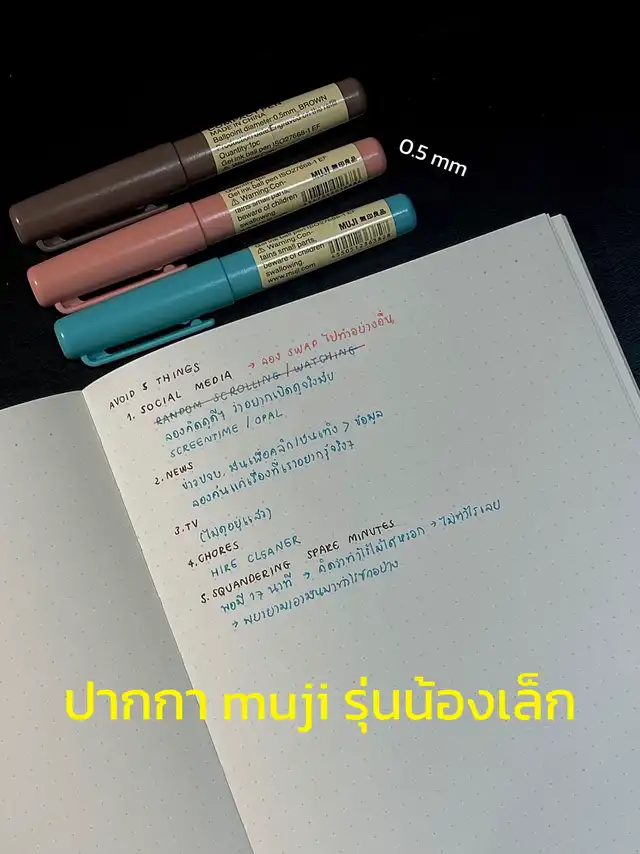 MADE IN CHINA
Ballpoint diameter:0.5mm, BROWN
Quantity:1pc
Gel ink ball pen ISO27668-1 EF
Gel ink ball pen ISO27668-1 EF
MUJI 無印良品
⚠ Warning:Con-
tains small parts,
beware of children
swallowing.
MUJI 無印良品
⚠ Warning:Con-
tains small parts,
beware of children
swallowing.
www.muji.com
0.5 mm
AVOID 5 THINGS
1. SOCIAL MEDIA → ลอง SWAP ไปทำอย่างอื่น
RANDOM SCROLLING / WATCHING
ลองคิดดูดีๆ ว่าอยากเปิดดูจริงมั้ย
SCREENTIME / OPAL
2. NEWS
ข่าวปจบ. เน้นเพื่อคลิก/บันเทิง > ข้อมูล
ลองค้นแค่เรื่องที่เราอยากรู้จริงๆ
3. TV
(ไม่ดูอยู่แล้ว)
4. CHORES
HIRE CLEANER
5. SQUANDERING SPARE MINUTES
พอมี 17 นาที → คิดว่าทำอะไรไม่ได้หรอก → ไม่ทำไรเลย
→ พยายามเอามันมาทำอะไรซักอย่าง
ปากกา muji รุ่นน้องเล็ก